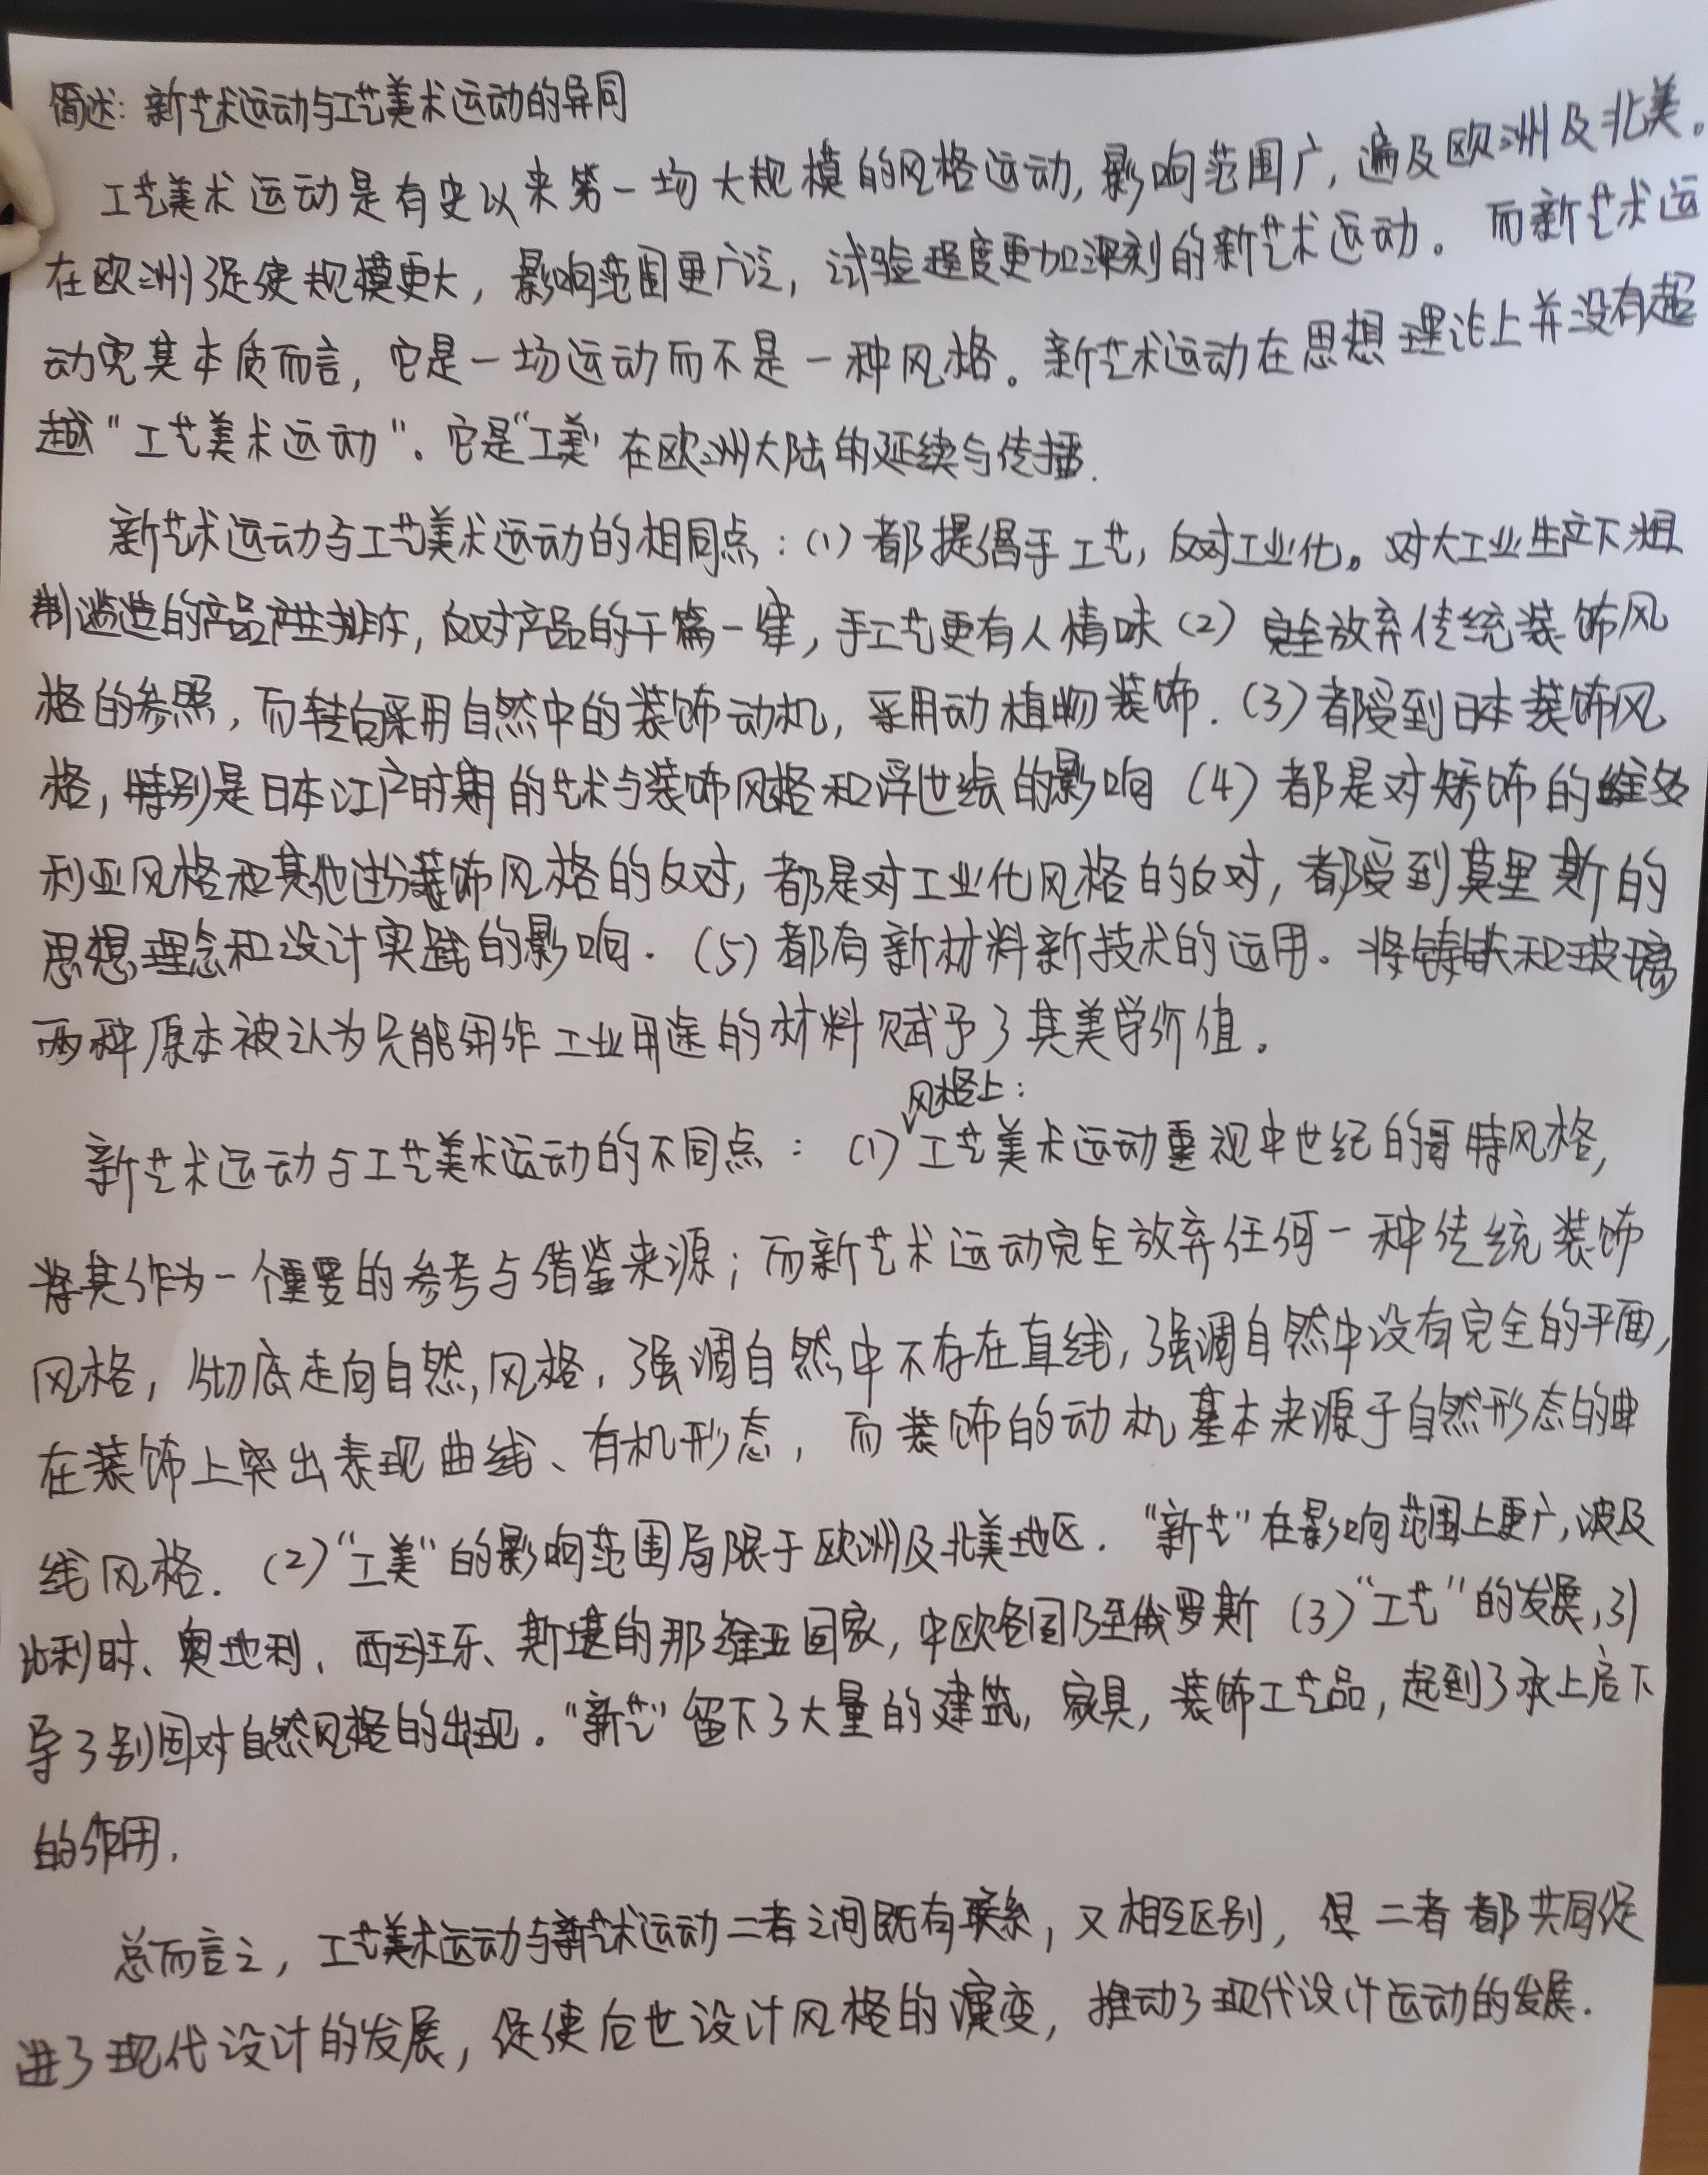 简述：新艺术运动与工艺美术运动的异同
工艺美术运动是有史以来第一场大规模的风格运动，影响范围广，遍及欧洲及北美。
在欧洲促使规模更大，影响范围更广泛，试验程度更加深刻的新艺术运动。而新艺术运
动究其本质而言，它是一场运动而不是一种风格。新艺术运动在思想理论上并没有超
越"工艺美术运动"。它是"工美"在欧洲大陆的延续与传播.
新艺术运动与工艺美术运动的相同点：(1)都提倡手工艺，反对工业化。对大工业生产下粗
制滥造的产品产生排斥，反对产品的千篇一律，手工艺更有人情味(2)完全放弃传统装饰风
格的参照，而转向采用自然中的装饰动机，采用动植物装饰.(3)都受到日本装饰风
格，特别是日本江户时期的艺术与装饰风格和浮世绘的影响(4)都是对矫饰的维多
利亚风格和其他过分装饰风格的反对，都是对工业化风格的反对，都受到莫里斯的
思想理念和设计实践的影响.(5)都有新材料新技术的运用。将铸铁和玻璃
两种原本被认为只能用作工业用途的材料赋予了其美学价值.
风格上：
新艺术运动与工艺美术运动的不同点：(1)工艺美术运动重视中世纪的哥特风格，
将其作为一个重要的参考与借鉴来源；而新艺术运动完全放弃任何一种传统装饰
风格，彻底走向自然,风格.强调自然中不存在直线，强调自然中没有完全的平面，
在装饰上突出表现曲线、有机形态，而装饰的动机基本来源于自然形态的曲
线风格.(2)"工美"的影响范围局限于欧洲及北美地区."新艺"在影响范围上更广，波及
比利时、奥地利、西班牙、斯堪的那维亚国家，中欧各国乃至俄罗斯(3)"工艺"的发展,引
导了别国对自然风格的出现。"新艺"留下了大量的建筑，家具，装饰工艺品，起到了承上启下
的作用.
总而言之，工艺美术运动与新艺术运动二者之间既有联系，又相互区别，但二者都共同促
进了现代设计的发展，促使后世设计风格的演变，推动了现代设计运动的发展.